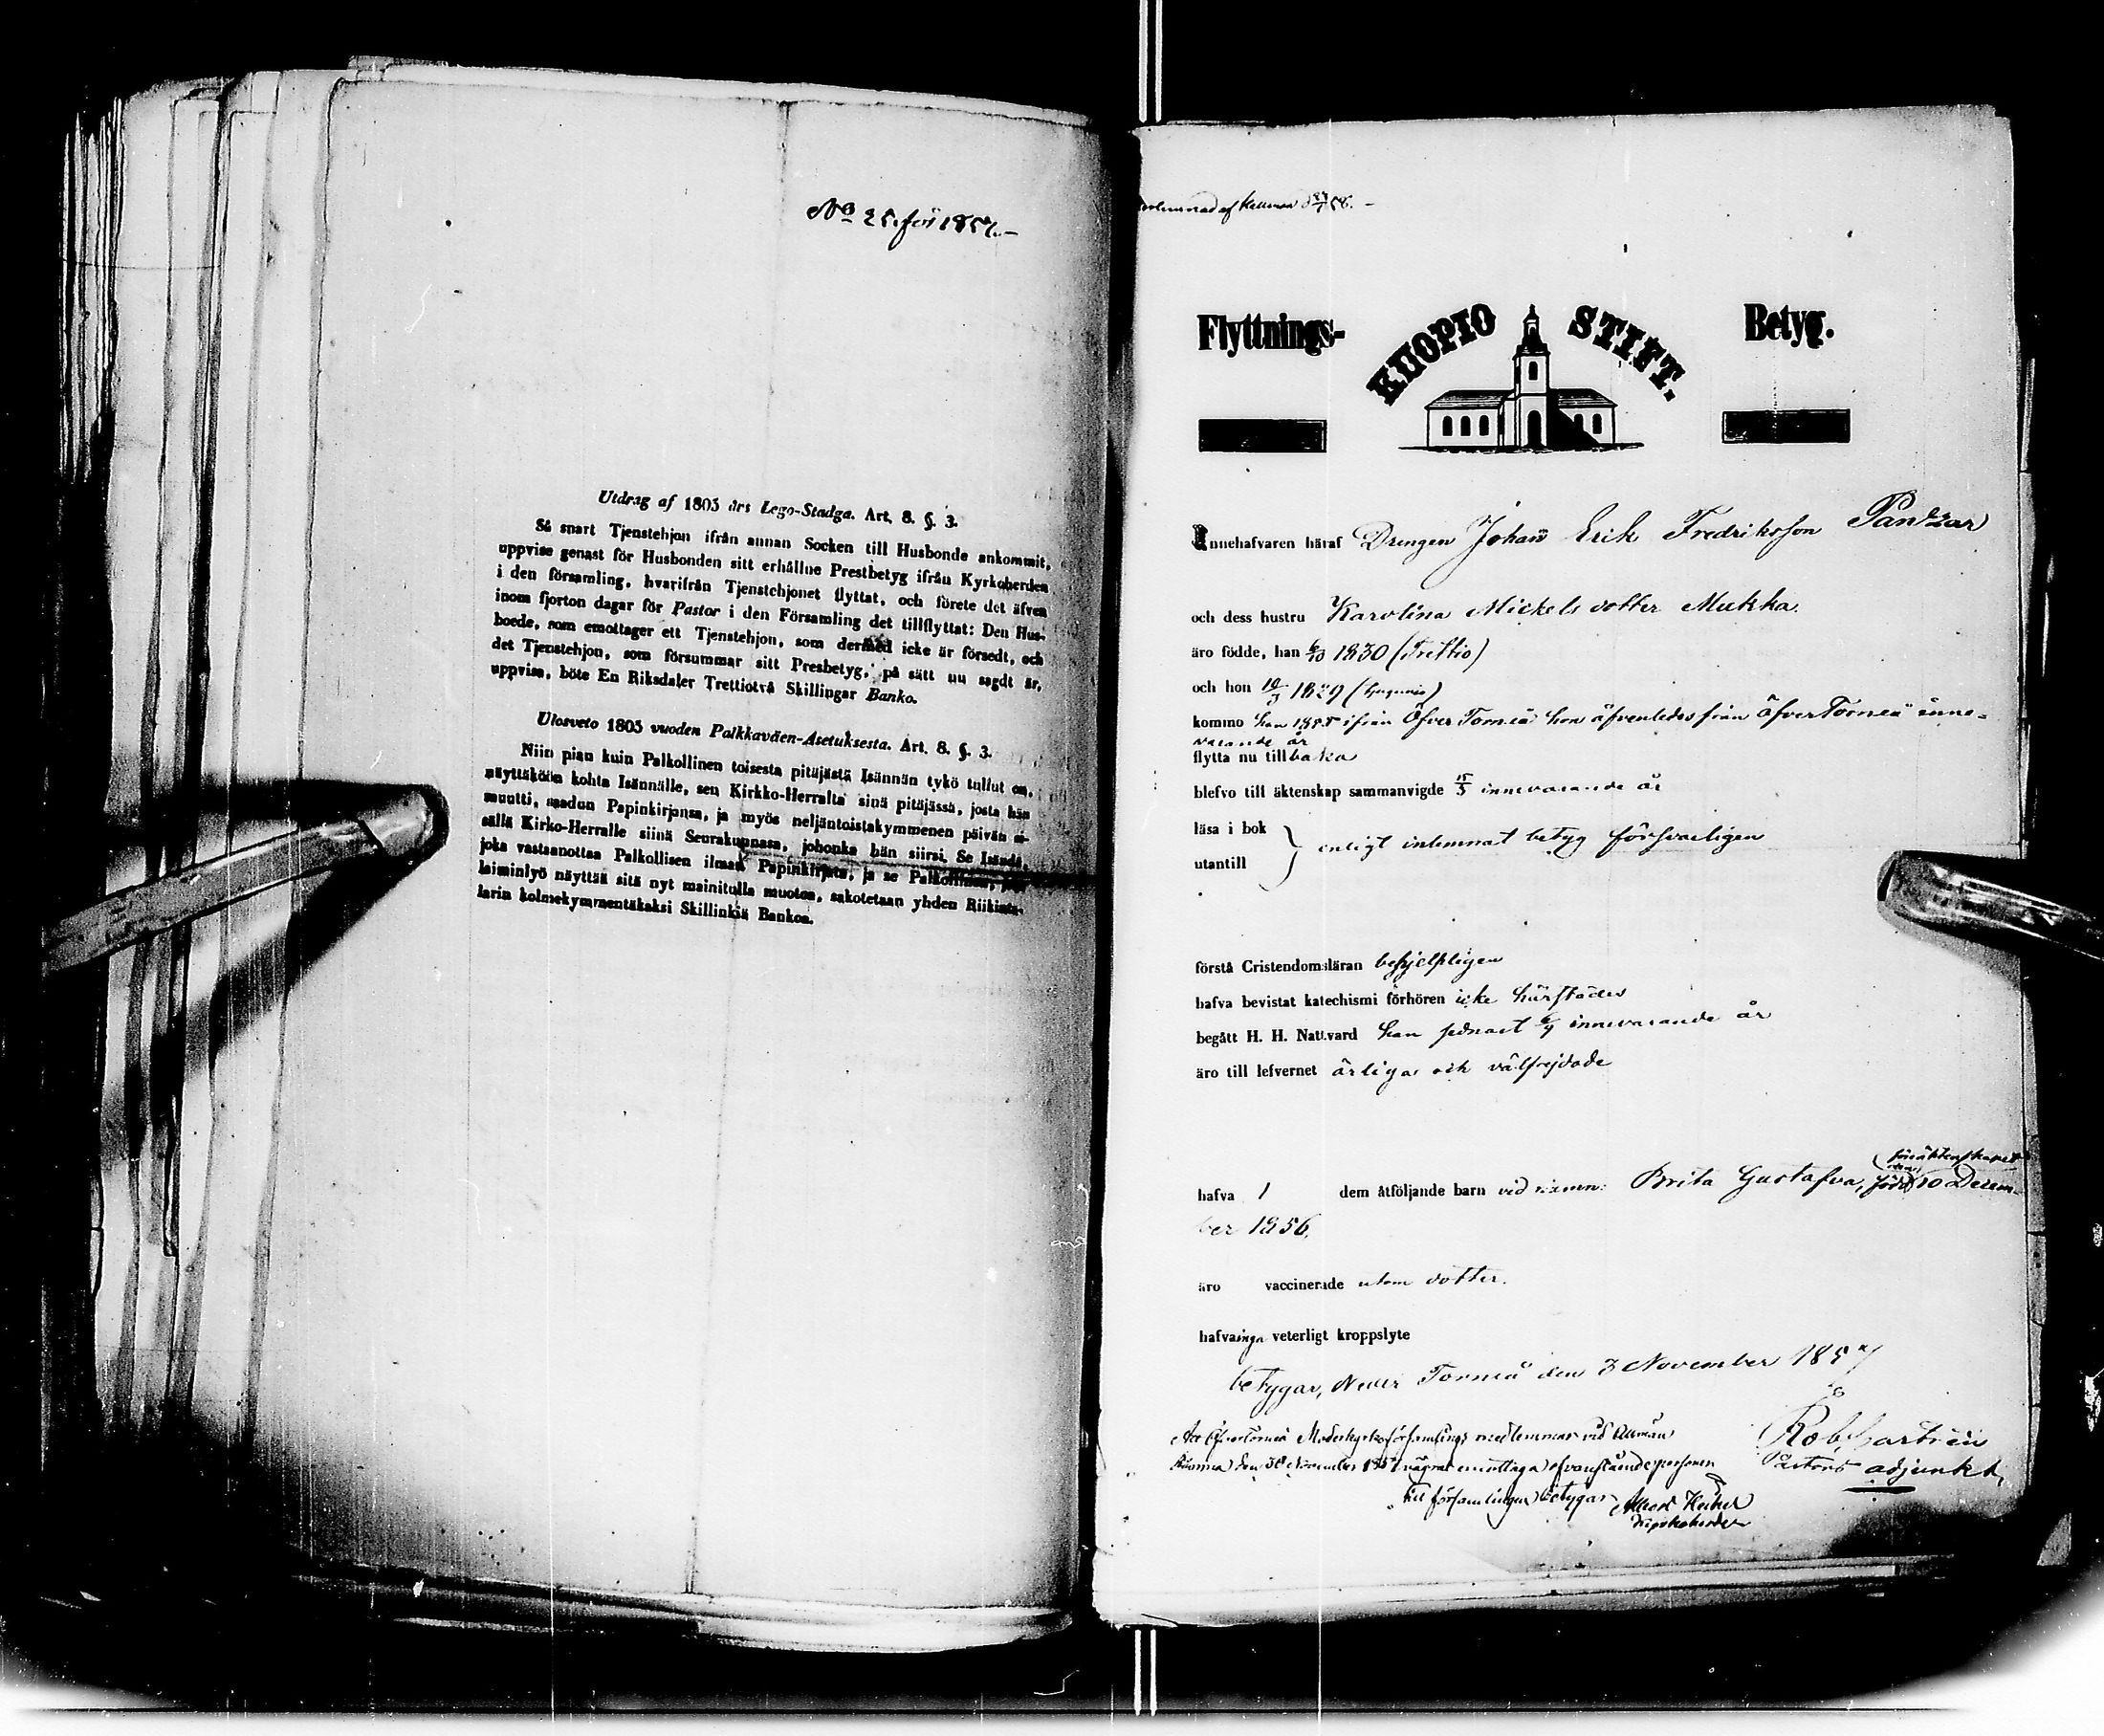 No 25. för 1857.
Utdrag af 1805 års Lego-Stadga. Art. 8. §. 3.
Så snart Tjenstehjon ifrån annan Socken till Husbonde ankommit,
uppvise genast för Husbonden sitt erhållne Prestbetyg ifrån Kyrkoherden
i den församling, hvarifrån Tjenstehjonet flyttat, och förete det äfven
inom fjorton dagar för Pastor i den Församling det tillflyttat: Den Hus-
boede, som emottager ett Tjenstehjon, som dermed icke är försedt, och
det Tjenstehjon, som försummar sitt Presbetyg, på sätt nu sagdt är,
uppvisa, böte En Riksdaler Trettiotvå Skillingar Banko.
Ulosveto 1805 vuoden Palkkaväen-Asetuksesta. Art. 8. §. 3.
Niin pian kuin Palkollinen toisesta pitäjästä Isännän tykö tullut on,
näyttäköön kohta Isännälle, sen Kirkko-Herralta sinä pitäjässä, josta hän
muutti, saadun Papinkirjansa, ja myös neljäntoistakymmenen päivän si-
sällä Kirko-Herralle siinä Seurakunnasa, johonka hän siirsi. Se Isändä,
joka vastaanottaa Palkollisen ilman Papinkirjata, ja se Palkollinen,
laiminlyö näyttää sitä nyt mainitulla muoton, sakotetaan yhden Riikinta-
larin kolmekymmentäkaksi Skillinkiä Bankoa.
Flyttnings- KUOPIO STIFT. Betyg.
Innehafvaren häraf Drengen Johan Erik Fredriksson Pantzar
och dess hustru Karolina Mickelsdotter Mukka.
äro födde, han 6/10 1830 (Trettio)
och hon 10/3 1829 (tjugunio)
komne han 1855 ifrån Öfver Torneå hon äfvenledes från Öfver Torneå inne-
varande år
flytta nu tillbaka
blefvo till äktenskap sammanvigde 15/5 innevarande år
läsa i bok
utantill } enligt inlemnat betyg försvarligen
förstå Cristendomsläran behjelpligen
hafva bevistat katechismi förhören icke härstädes
begått H. H. Nattvard han sednast 6/9 innevarande år
äro till lefvernet ärliga och välfrejdade
föräktenskapet
hafva 1 dem åtföljande barn vid namn: Brita Gustafva, född 10 Decem-
ber 1856.
äro vaccinerade utom dotter.
hafva inga veterligt kroppslyte
betygar, Neder Torneå den 3 November 1857
Rob.
Pastors adjunkt,
Att Öfver Torneå Moderkyrkoförsamlings medlemmar vid Allmän
den 30 November 1857 emottaga ofvanstående personer
till församlingen betygar Albert
Kyrkoherde